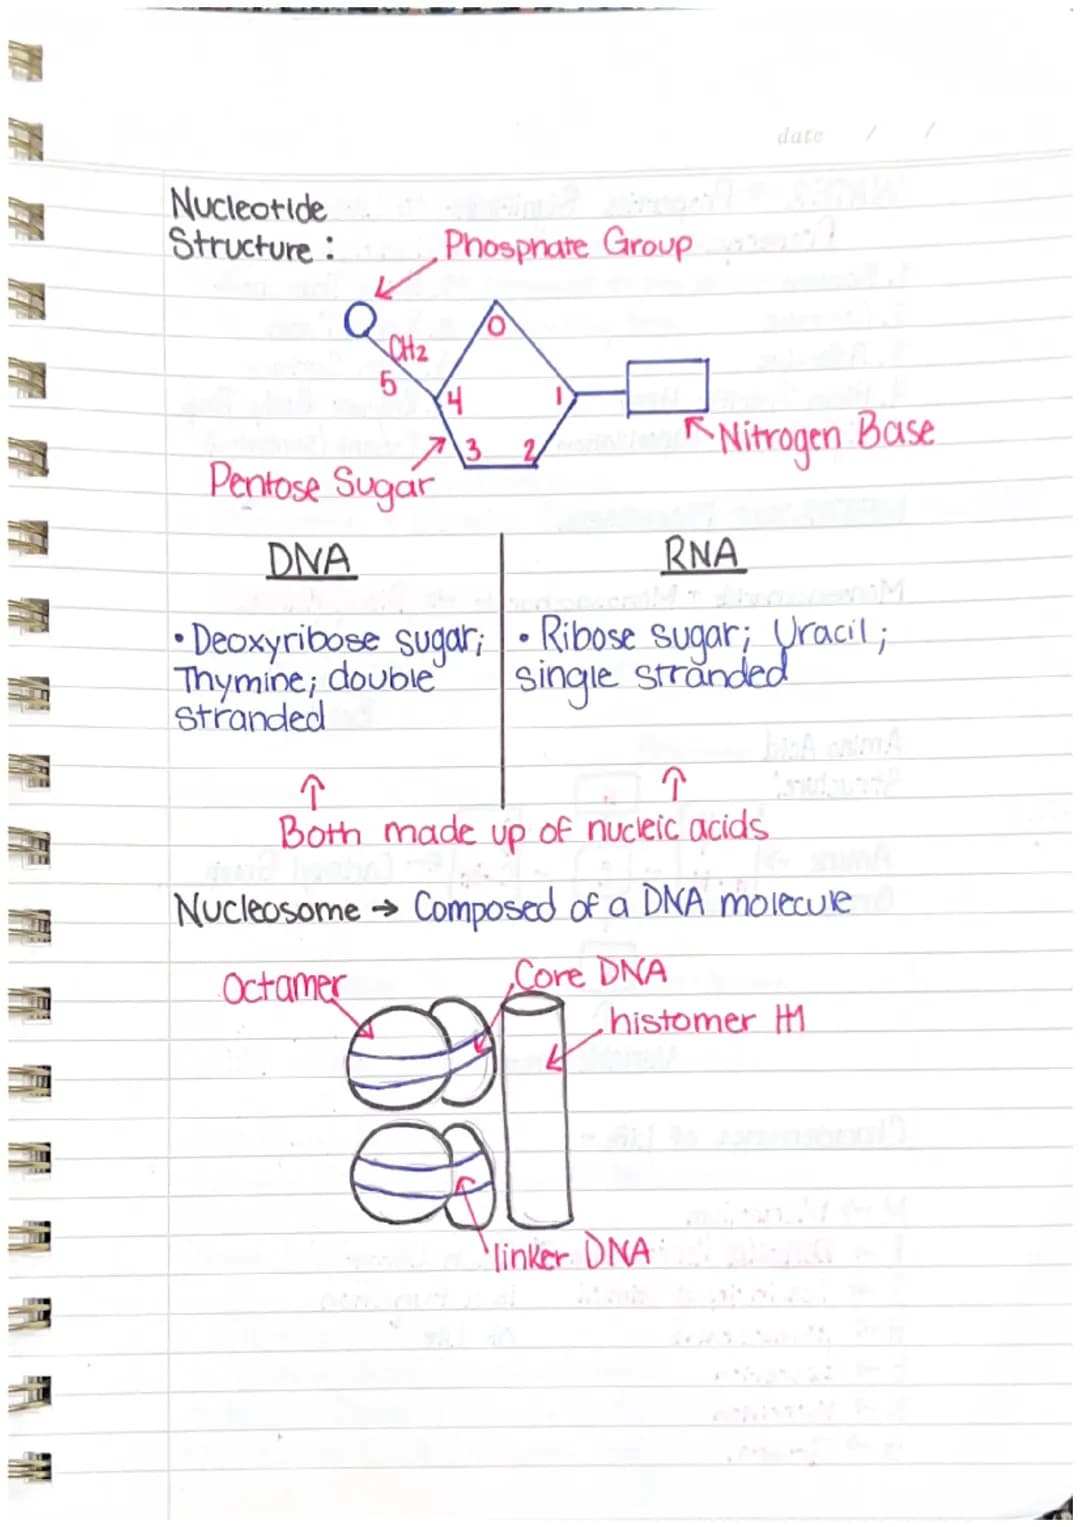 date / /
Nucleotide
Structure :
Phosphate Group
O
CH2
5
4
1
3
2
Nitrogen Base
Pentose Sugar
DNA
RNA
• Deoxyribose sugar;
Thymine; double
stranded
• Ribose sugar; Uracil;
single stranded
↑ ↑
Both made up of nucleic acids
Nucleosome → Composed of a DNA molecule
Octamer
Core DNA
histomer H1
linker DNA